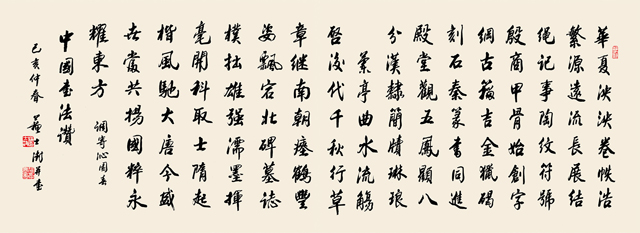 華夏泱泱卷帙浩
繁源遠流長展結
繩记事陶纹符號
殷商甲骨始創字
綱古籀吉金獵碣
刻石秦篆書同進
殿堂觀五鳳顯八
分漢隸簡牘琳琅
蘭亭曲水流觴
啓後代千秋行草
章继南朝瘞鶴豐
姿飄宕北碑墓誌
樸拙雄强濡墨揮
毫開科取士隋起
楷風馳大唐今盛
世當共揚國粹永
耀東方 調寄沁園春
中國書法讚
己亥仲春 蘇士澍并書